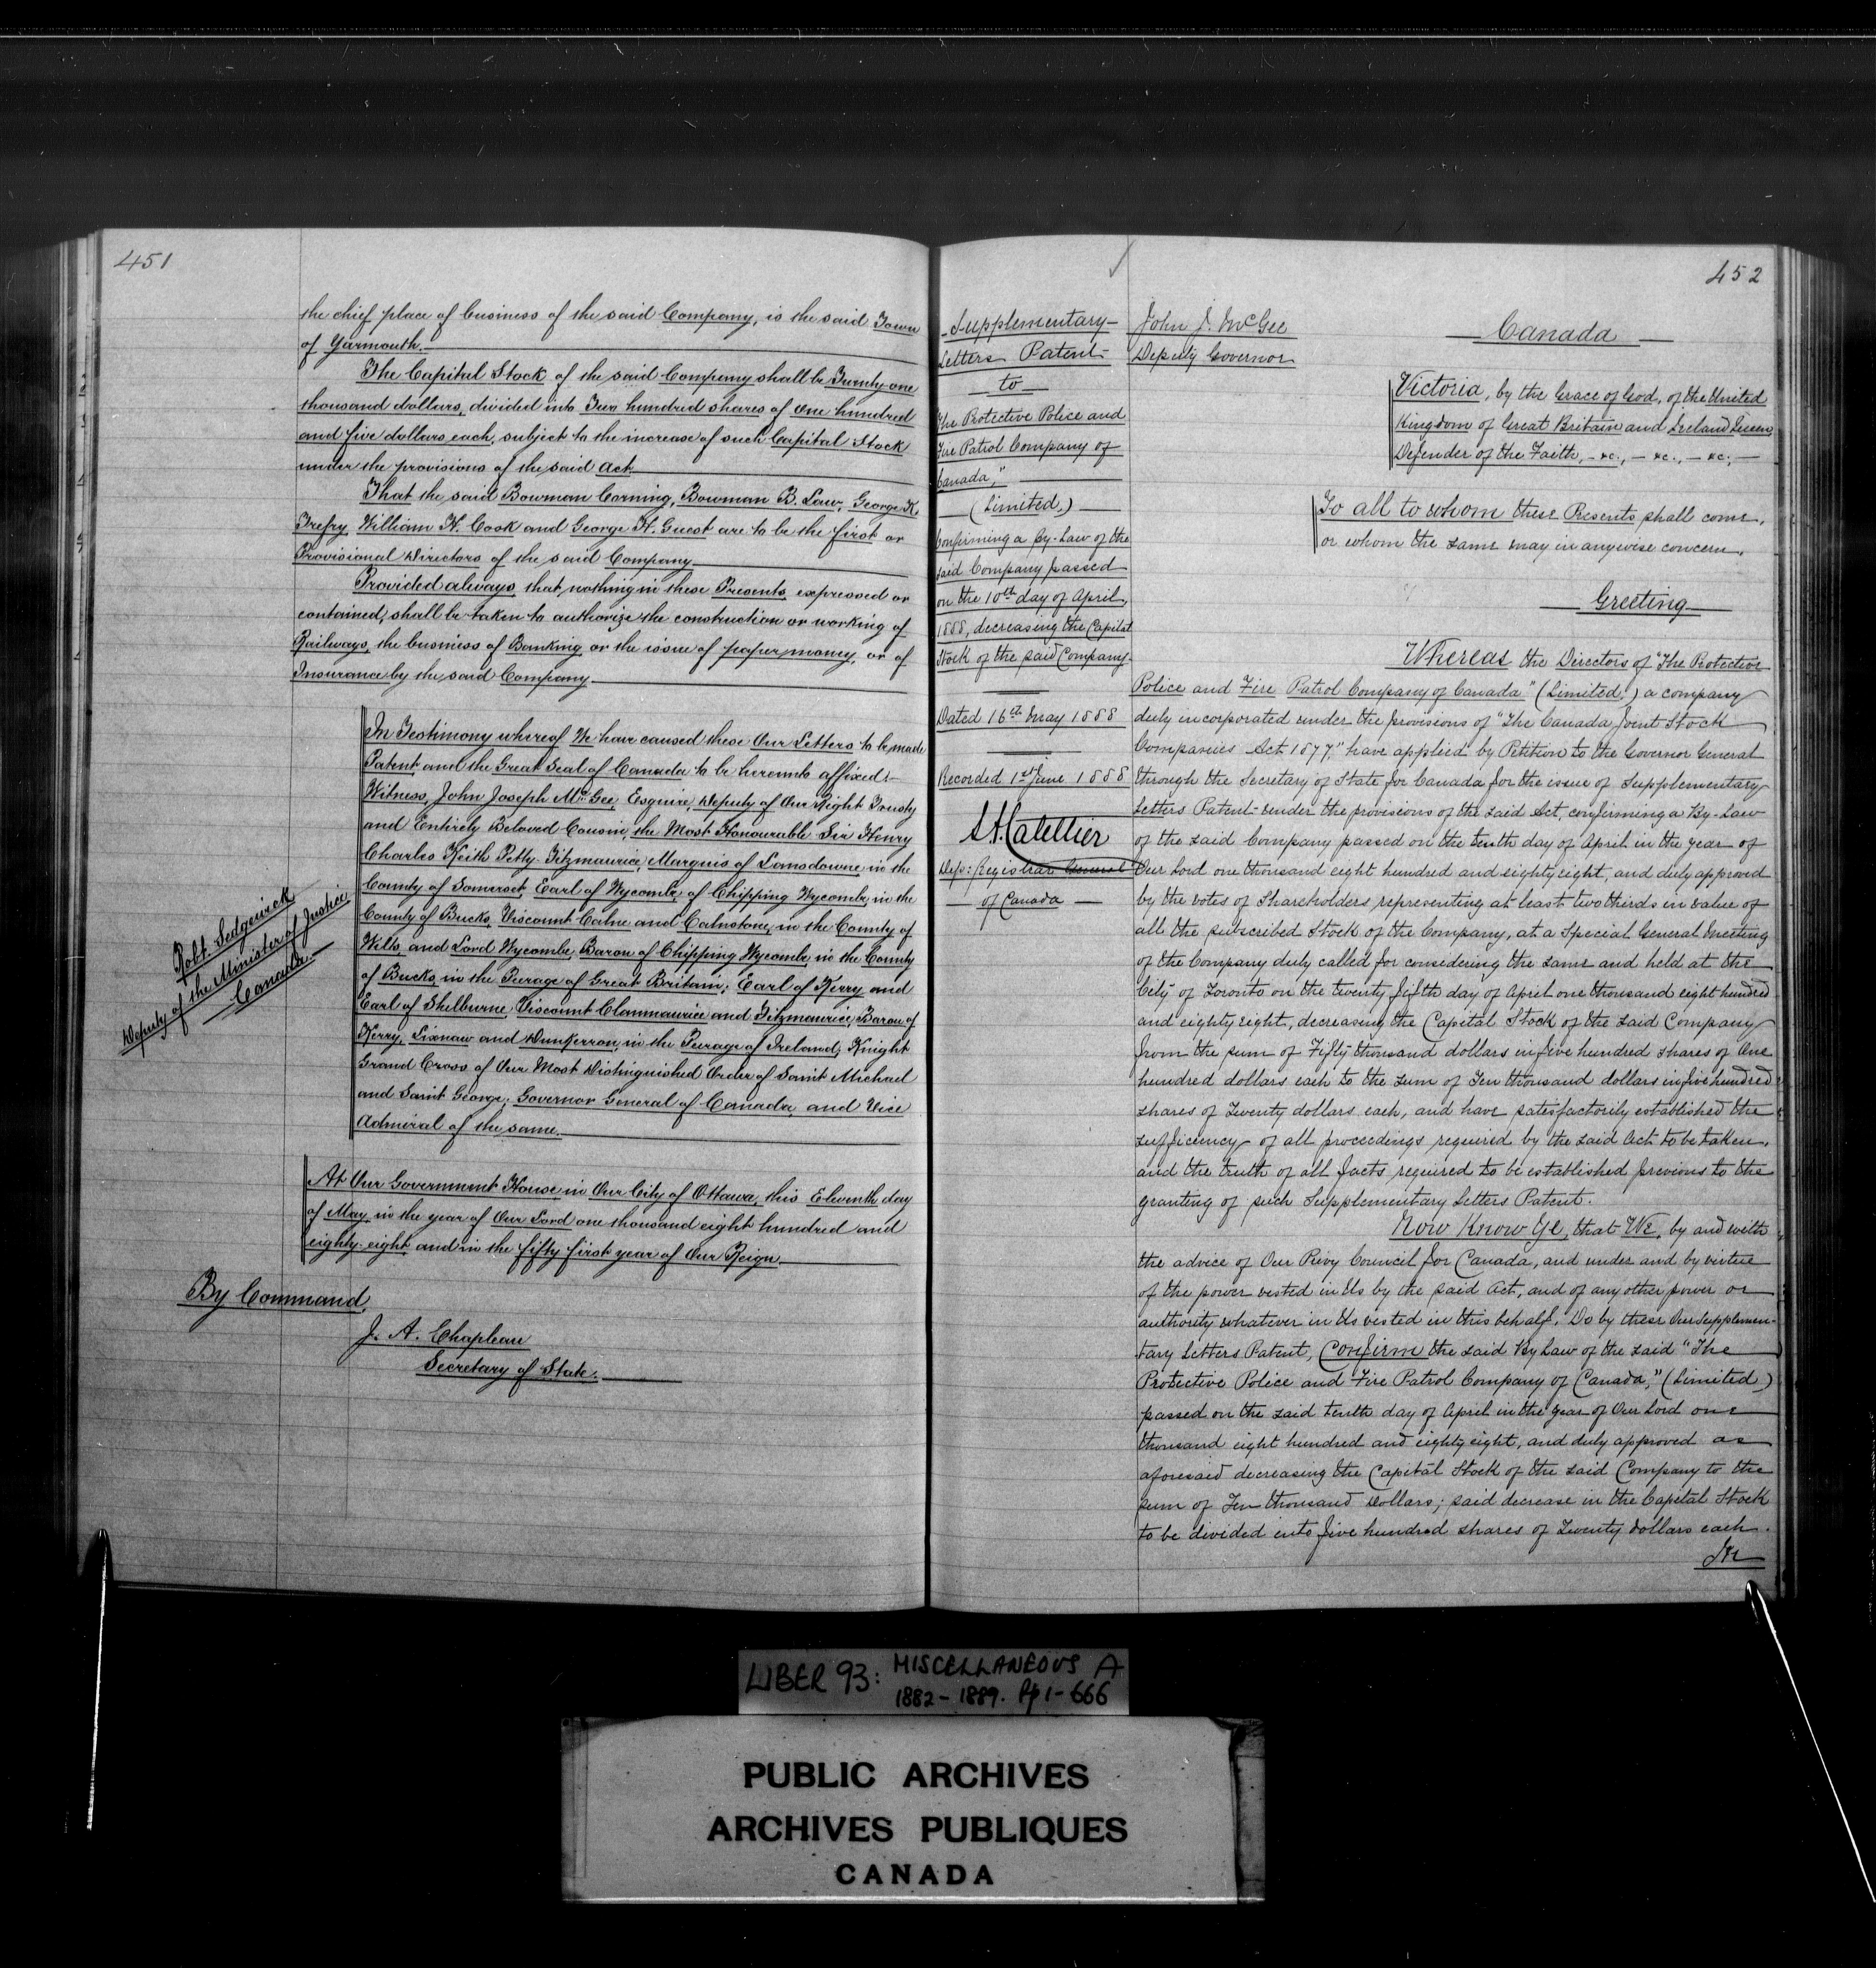 451
the chief place of business of the said Company, is the said Town
of Yarmouth.
The Capital Stock of the said Company shall be Twenty one
thousand dollars, divided into Two hundred shares of One hundred
and five dollars each, subject to the increase of such Capital Stock
under the provisions of the said Act.
That the said Bowman Corning, Bowman B. Law, George K.
Trefry, William H. Cook and George H. Guest are to be the first or
Provisional Directors of the said Company.
Provided always, that nothing in these Presents expressed or
contained, shall be taken to authorize the construction or working of
Railways, the business of Banking, or the issue of paper money, or of
Insurance by the said Company.
In Testimony whereof We have caused these Our Letters to be made
Patent, and the Great Seal of Canada to be hereunto affixed:
Witness, John Joseph McGee, Esquire, Deputy of Our Right Trusty
and Entirely Beloved Cousin, the Most Honourable Sir Henry
Charles Keith Petty-Fitzmaurice, Marquis of Lansdowne in the
County of Somerset, Earl of Wycombe, of Chipping Wycombe in the
County of Bucks, Viscount Calne and Calnstone, in the County of
Wilts, and Lord Wycombe, Baron of Chipping Wycombe, in the County
of Bucks, in the Peerage of Great Britain; Earl of Kerry and
Earl of Shelburne, Viscount Clanmaurice and Fitzmaurice, Baron of
Kerry, Lixnaw and Dunkerron, in the Peerage of Ireland; Knight
Grand Cross of Our Most Distinguished Order of Saint Michael
and Saint George; Governor General of Canada and Vice
Admiral of the same.
Robt. Sedgewick
Deputy of the Minister of Justice
Canada.
At Our Government House in Our City of Ottawa, this Eleventh day
of May, in the year of Our Lord one thousand eight hundred and
eighty-eight and in the fifty first year of Our Reign.
By Command,
J. A. Chapleau
Secretary of State.
452
Supplementary
Letters Patent
to
The Protective Police and
Fire Patrol Company of
Canada,"
(Limited,)
Confirming a By-Law of the
said Company passed
on the 10th day of April,
1888, decreasing the Capital
Stock of the said Company.
Dated 16th May 1888
Recorded 1st June 1888
L. A. Catellier
Dep: Registrar General
of Canada
John J. McGee
Deputy Governor
Canada
Victoria, by the Grace of God, of the United
Kingdom of Great Britain and Ireland Queen,
Defender of the Faith, &c., &c., &c.,
To all to whom these Presents shall come,
or whom the same may in anywise concern,
Greeting
Whereas the Directors of "The Protective
Police and Fire Patrol Company of Canada" (Limited,) a company
duly incorporated under the provisions of "The Canada Joint Stock
Companies Act 1877," have applied by Petition to the Governor General
through the Secretary of State for Canada for the issue of Supplementary
Letters Patent under the provisions of the said Act, confirming a By-Law
of the said Company passed on the tenth day of April in the year of
Our Lord one thousand eight hundred and eighty eight, and duly approved
by the votes of Shareholders representing at least two thirds in value of
all the subscribed Stock of the Company, at a Special General Meeting
of the Company duly called for considering the same and held at the
City of Toronto on the twenty fifth day of April one thousand eight hundred
and eighty eight, decreasing the Capital Stock of the said Company
from the sum of Fifty thousand dollars in five hundred shares of One
hundred dollars each to the sum of Ten thousand dollars in five hundred
shares of Twenty dollars each, and have satisfactorily established the
sufficiency of all proceedings required by the said Act to be taken,
and the truth of all facts required to be established previous to the
granting of such Supplementary Letters Patent.
Now Know Ye, that We, by and with
the advice of Our Privy Council for Canada, and under and by virtue
of the power vested in Us by the said Act, and of any other power or
authority whatever in Us vested in this behalf, Do by these Our Supplemen-
tary Letters Patent, Confirm the said By Law of the said "The
Protective Police and Fire Patrol Company of Canada," (Limited)
passed on the said tenth day of April in the year of Our Lord one
thousand eight hundred and eighty eight, and duly approved as
aforesaid decreasing the Capital Stock of the said Company to the
sum of Ten thousand Dollars; said decrease in the Capital Stock
to be divided into five hundred shares of Twenty dollars each.
In
LIBER 93: MISCELLANEOUS A
1882-1889. Pp 1-666
PUBLIC ARCHIVES
ARCHIVES PUBLIQUES
CANADA